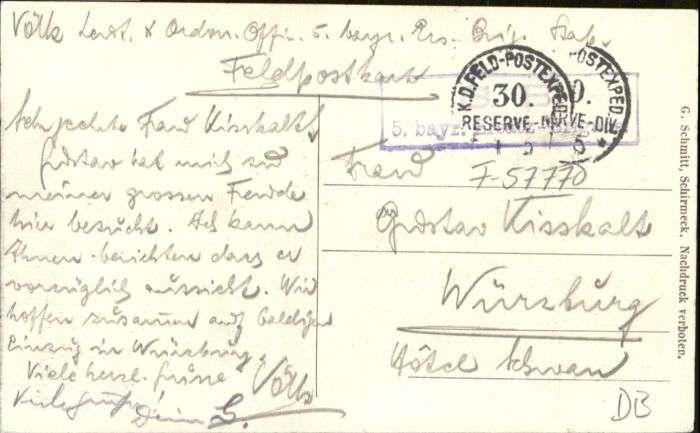 Völk Leut. & Ordon. Offi. 5. bayr. Ers. Brig. Stab.
Feldpostkarte
K.D. FELD-POSTEXPED.
30.
RESERVE-DIV.
POSTEXPED.
VE-DIV.
5. bayr.
Sehr geehrte Frau Kisskalt!
Gustav hat mich zu
meiner grossen Freude
hier besucht. Ich kann
Ihnen berichten dass er
vorzüglich aussieht. Wir
hoffen zusammen auf baldigen
Einzug in Würzburg.
Viele herzl. Grüsse
Völk
Viele Grüsse!
Dein G.
Frau
F-57770
Gustav Kisskalt
Würzburg
Hôtel Schwan
DB
G. Schmitt, Schirmeck. Nachdruck verboten.